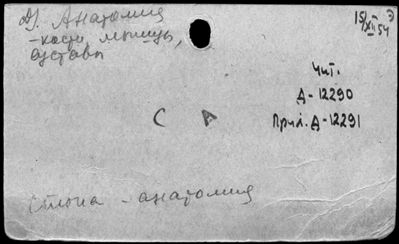 А). Анатомия
15/XII 54 Э
- кости, мышцы,
суставы
Чит.
Д-12290
С А
Прил. Д-12291
Стопа - анатомия